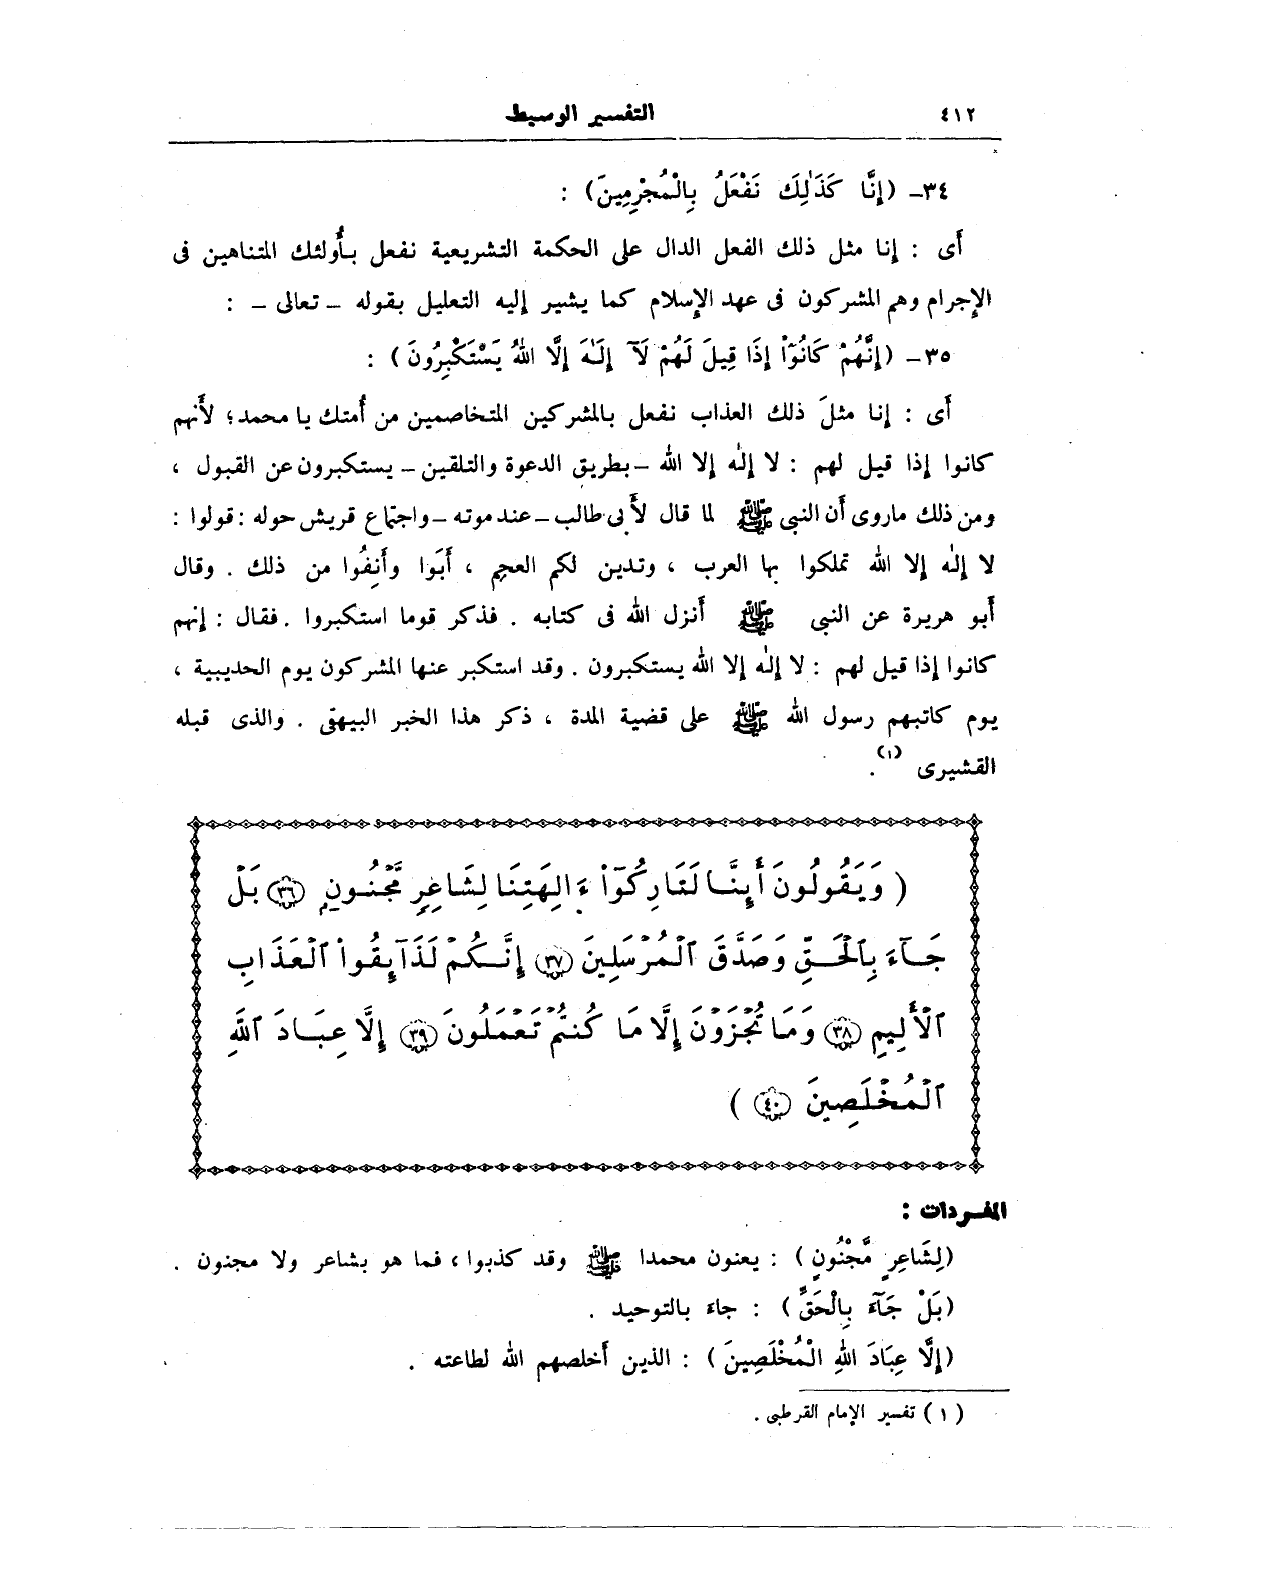 ٤١٢
التفسير الوسيط
٣٤- (إِنَّا كَذَٰلِكَ نَفْعَلُ بِالْمُجْرِمِينَ) :
أَى : إنا مثل ذلك الفعل الدال على الحكمة التشريعية نفعل بأُولئك المتناهين فى
الإِجرام وهم المشركون فى عهد الإِسلام كما يشير إليه التعليل بقوله - تعالى - :
٣٥- (إِنَّهُمْ كَانُوٓاْ إِذَا قِيلَ لَهُمْ لَآ إِلَـٰهَ إِلَّا اللهُ يَسْتَكْبِرُونَ) :
أَى : إنا مثلَ ذلك العذاب نفعل بالمشركين المتخاصمين من أُمتك يا محمد؛ لأَنهم
كانوا إذا قيل لهم : لا إلٰه إلا الله - بطريق الدعوة والتلقين - يستكبرون عن القبول ،
ومن ذلك ماروى أَن النبى ﷺ لما قال لأَبى طالب - عند موته - واجتماع قريش حوله : قولوا :
لا إلٰه إلا الله تملكوا بها العرب ، وتدين لكم العجم ، أَبَوا وأَنِفُوا من ذلك . وقال
أَبو هريرة عن النبى ﷺ أَنزل الله فى كتابه . فذكر قوما استكبروا . فقال : إنهم
كانوا إذا قيل لهم : لا إلٰه إلا الله يستكبرون . وقد استكبر عنها المشركون يوم الحديبية ،
يوم كاتبهم رسول الله ﷺ على قضية المدة ، ذكر هذا الخبر البيهقى . والذى قبله
القشيرى (١) .
( وَيَقُولُونَ أَئِنَّا لَتَارِكُوٓاْ ءَالِهَتِنَا لِشَاعِرٍ مَّجْنُونٍۭ ٣٦ بَلْ
جَآءَ بِٱلْحَقِّ وَصَدَّقَ ٱلْمُرْسَلِينَ ٣٧ إِنَّكُمْ لَذَآئِقُواْ ٱلْعَذَابِ
ٱلْأَلِيمِ ٣٨ وَمَا تُجْزَوْنَ إِلَّا مَا كُنتُمْ تَعْمَلُونَ ٣٩ إِلَّا عِبَادَ ٱللَّهِ
ٱلْمُخْلَصِينَ ٤٠ )
المفردات :
(لِشَاعِرٍ مَّجْنُونٍ) : يعنون محمدا ﷺ وقد كذبوا ، فما هو بشاعر ولا مجنون .
(بَلْ جَآءَ بِالْحَقِّ) : جاءَ بالتوحيد .
(إِلَّا عِبَادَ اللهِ الْمُخْلَصِينَ) : الذين أَخلصهم الله لطاعته .
(١) تفسير الإمام القرطبى .